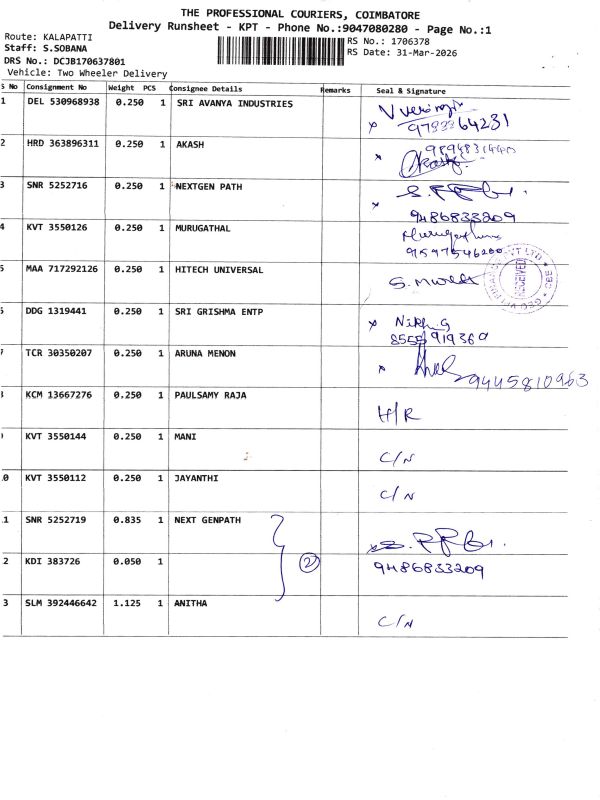 THE PROFESSIONAL COURIERS, COIMBATORE
Delivery Runsheet - KPT - Phone No.:9047080280 - Page No.:1
Route: KALAPATTI
Staff: S.SOBANA
DRS No.: DCJB170637801
Vehicle: Two Wheeler Delivery
RS No.: 1706378
RS Date: 31-Mar-2026
S No Consignment No Weight PCS Consignee Details Remarks Seal & Signature
1 DEL 530968938 0.250 1 SRI AVANYA INDUSTRIES
2 HRD 363896311 0.250 1 AKASH
3 SNR 5252716 0.250 1 NEXTGEN PATH
9486833209
4 KVT 3550126 0.250 1 MURUGATHAL
5 MAA 717292126 0.250 1 HITECH UNIVERSAL
RECEIVED
6 DDG 1319441 0.250 1 SRI GRISHMA ENTP
7 TCR 30350207 0.250 1 ARUNA MENON
9445810963
8 KCM 13667276 0.250 1 PAULSAMY RAJA H/R
9 KVT 3550144 0.250 1 MANI C/N
0 KVT 3550112 0.250 1 JAYANTHI C/N
1 SNR 5252719 0.835 1 NEXT GENPATH
2 KDI 383726 0.050 1 2 9486833209
3 SLM 392446642 1.125 1 ANITHA C/N